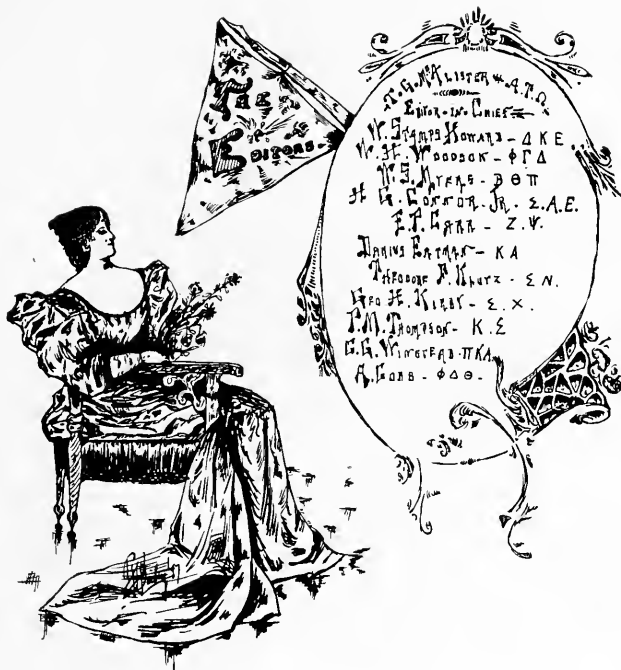 The
Editors.
T. G. McAlister - A.T.Ω.
Editor-in-Chief
W. Stamps Howard - Δ K E
W. H. Woodson - Φ Γ Δ
W. S. Myers - B Θ Π
H. G. Connor Jr. - Σ.A.E.
E. P. Carr - Z.Ψ.
Darius Eatman - K A
Theodore F. Kluttz - Σ N.
Geo H. Kirby - Σ. X.
P. M. Thompson - K. Σ
G. G. Winstead - Π K A.
A. Gobb - Φ Δ Θ.